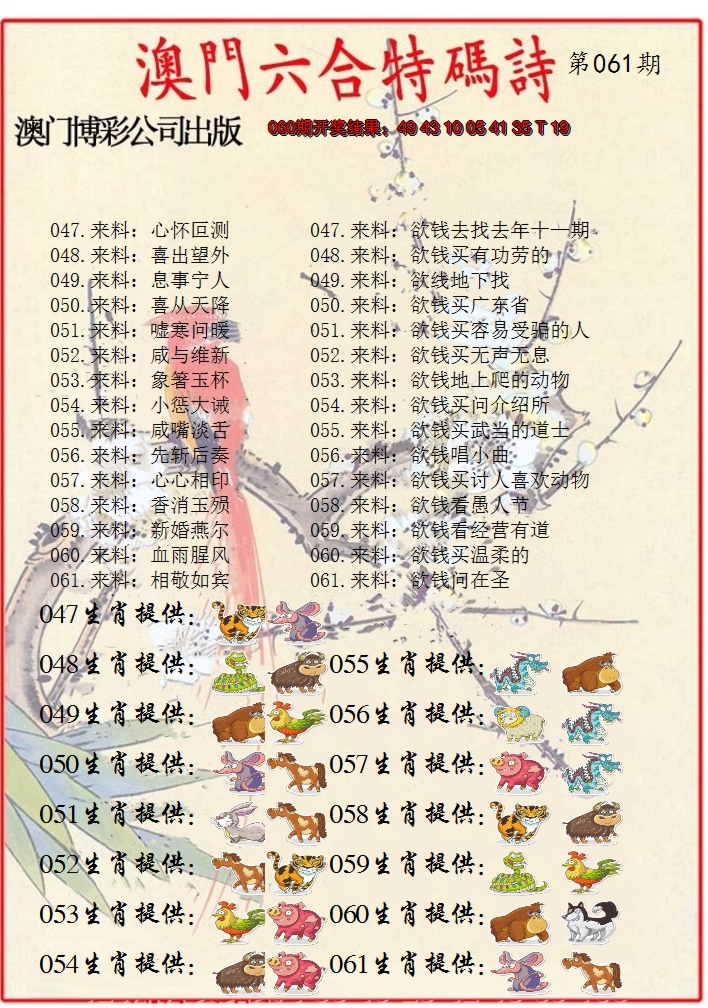 澳門六合特碼詩 第061期
澳门博彩公司出版 060期开奖结果：49 43 10 05 41 35 T 19
047.来料：心怀叵测 047.来料：欲钱去找去年十一期
048.来料：喜出望外 048.来料：欲钱买有功劳的
049.来料：息事宁人 049.来料：欲线地下找
050.来料：喜从天降 050.来料：欲钱买广东省
051.来料：嘘寒问暖 051.来料：欲钱买容易受骗的人
052.来料：咸与维新 052.来料：欲钱买无声无息
053.来料：象箸玉杯 053.来料：欲钱地上爬的动物
054.来料：小惩大诫 054.来料：欲钱买问介绍所
055.来料：咸嘴淡舌 055.来料：欲钱买武当的道士
056.来料：先斩后奏 056.来料：欲钱唱小曲
057.来料：心心相印 057.来料：欲钱买讨人喜欢动物
058.来料：香消玉殒 058.来料：欲钱看愚人节
059.来料：新婚燕尔 059.来料：欲钱看经营有道
060.来料：血雨腥风 060.来料：欲钱买温柔的
061.来料：相敬如宾 061.来料：欲钱问在圣
047生肖提供：
048生肖提供： 055生肖提供：
049生肖提供： 056生肖提供：
050生肖提供： 057生肖提供：
051生肖提供： 058生肖提供：
052生肖提供： 059生肖提供：
053生肖提供： 060生肖提供：
054生肖提供： 061生肖提供：